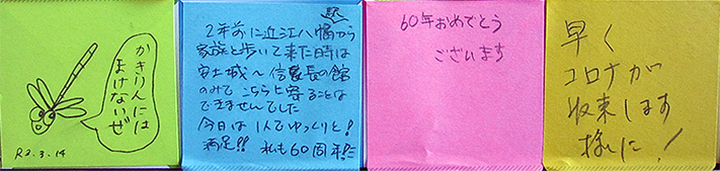 かきりんには
まけないぜ
R2.3.14
2年前に近江八幡駅から
家族と歩いて来た時は
安土城〜信長の館
のみで こちらに寄ることは
できませんでした
今日は1人でゆっくりと!
満足!! 私も60周年!!
60年おめでとう
ございます
早く
コロナが
収束します
様に!